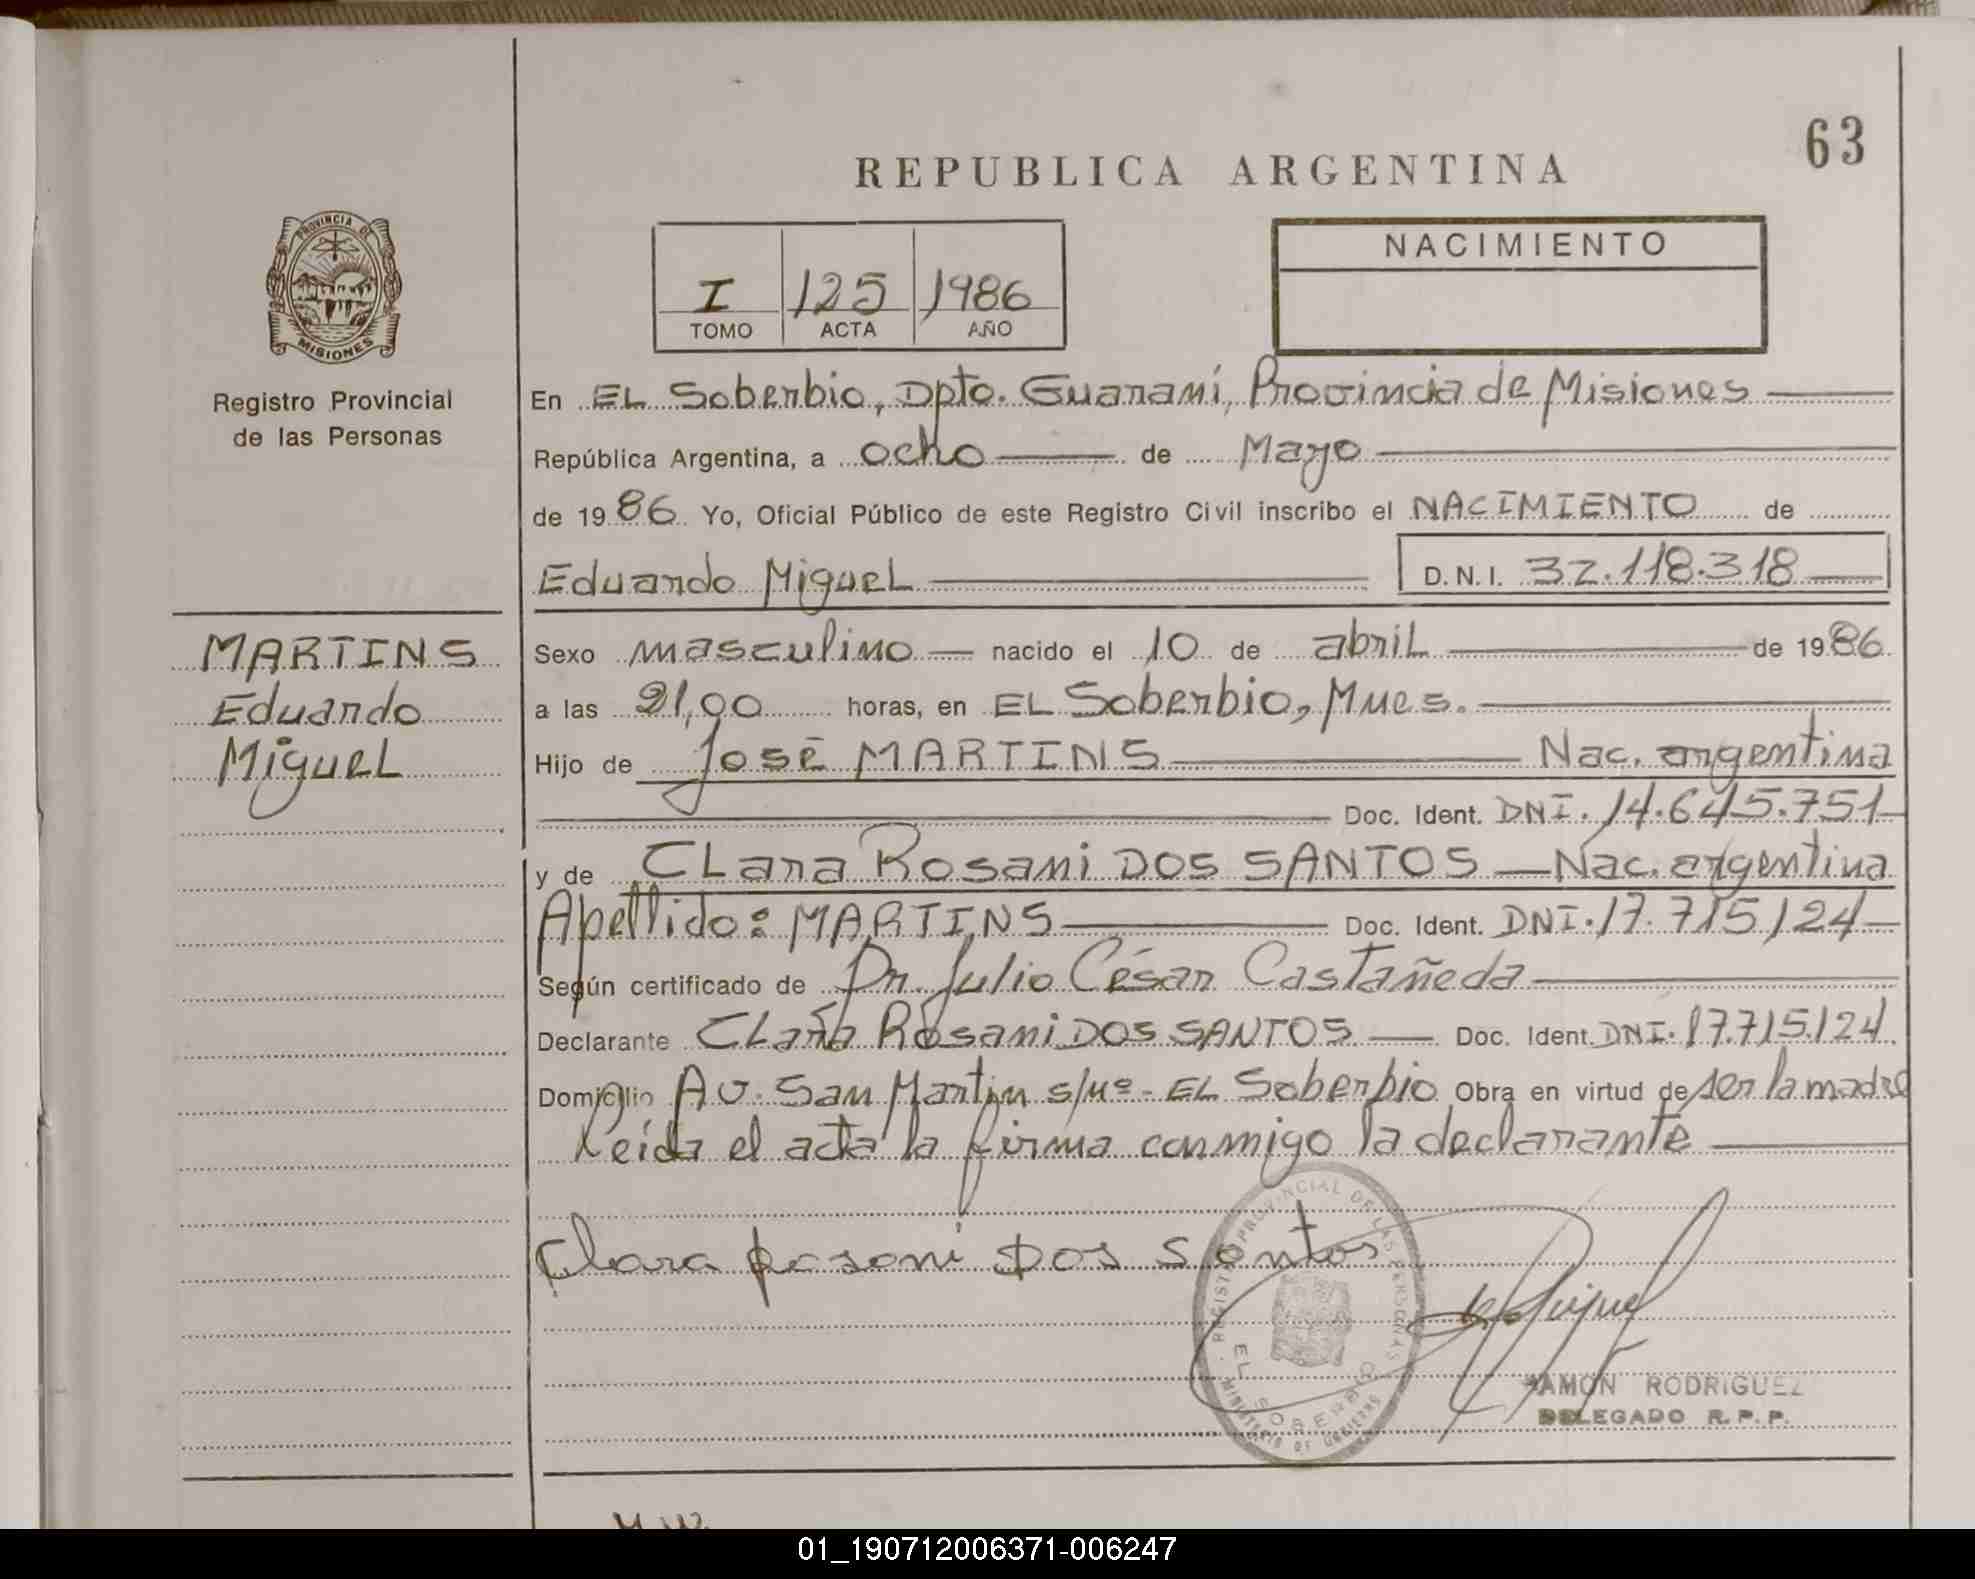 63
REPUBLICA ARGENTINA
PROVINCIA DE
MISIONES
Registro Provincial
de las Personas
I 125 1986
TOMO ACTA AÑO
NACIMIENTO
En EL Soberbio, Dpto. Guaraní, Provincia de Misiones
República Argentina, a ocho de Mayo
de 1986 Yo, Oficial Público de este Registro Civil inscribo el NACIMIENTO de
Eduardo Miguel D.N.I. 32.118.318
MARTINS
Eduardo
Miguel
Sexo masculino nacido el 10 de abril de 1986
a las 21,00 horas, en EL Soberbio, Mnes.
Hijo de José MARTINS Nac. argentina
Doc. Ident. DNI. 14.645.751
y de Clara Rosani DOS SANTOS Nac. argentina
Apellido: MARTINS Doc. Ident. DNI. 17.715.124
Según certificado de Dr. Julio César Castañeda
Declarante Clara Rosani DOS SANTOS Doc. Ident. DNI. 17.715.124
Domicilio Av. San Martin s/nº - EL Soberbio Obra en virtud de ser la madre
Leída el acta la firma conmigo la declarante
Clara Rosani Dos Santos
REGISTRO PROVINCIAL DE LAS PERSONAS
EL SOBERBIO
MINISTERIO DE GOBIERNO
RAMON RODRIGUEZ
DELEGADO R.P.P.
01_190712006371-006247